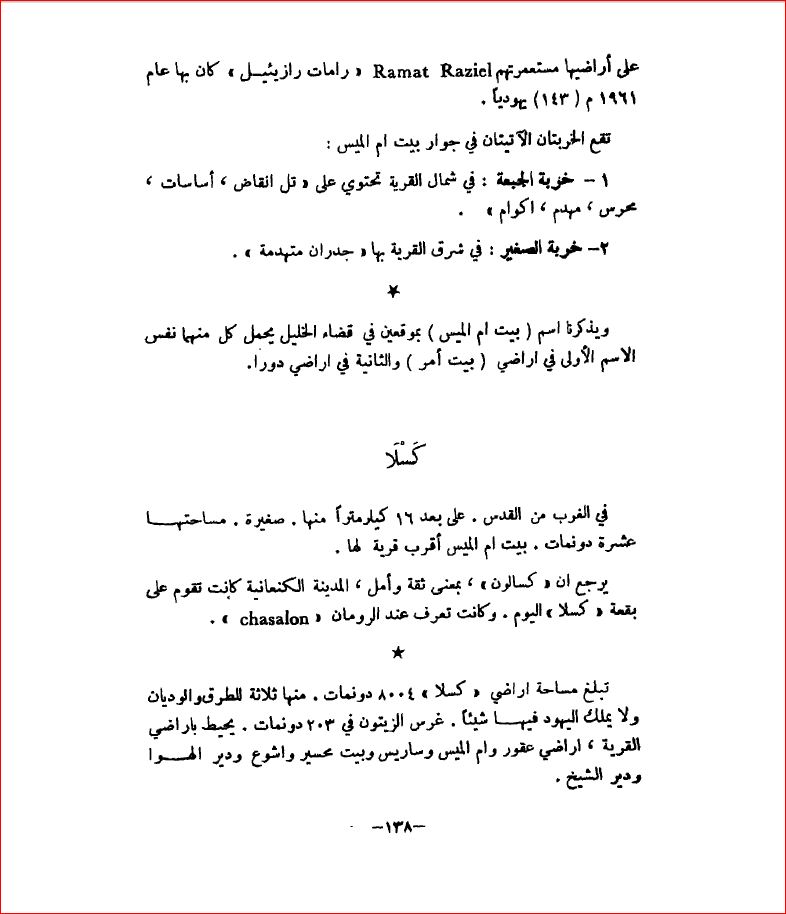 على أراضيها مستعمرتهم Ramat Raziel « رامات رازيئيـل » كان بها عام
١٩٦١ م ( ١٤٣ ) يهودياً .
تقع الخربتان الآتيتان في جوار بيت ام الميس :
١ – خربة الجبعة : في شمال القرية تحتوي على « تل انقاض ، أساسات ،
محرس ، مهدم ، اكوام » .
٢– خربة الصغير : في شرق القرية بها « جدران متهدمة » .
★
ويذكرنا اسم ( بيت ام الميس ) بموقعين في قضاء الخليل يحمل كل منهما نفس
الاسم الأولى في اراضي ( بيت أمر ) والثانية في اراضي دورا.
كَسْلَا
في الغرب من القدس . على بعد ١٦ كيلرمتراً منها . صغيرة . مساحتهــا
عشرة دونمات . بيت ام الميس أقرب قرية لها .
يرجع ان « كسالون » ، بمعنى ثقة وأمل ، المدينة الكنعانية كانت تقوم على
بقعة « كسلا » اليوم . وكانت تعرف عند الرومان « chasalon » .
★
تبلغ مساحة اراضي « كسلا » ٨٠٠٤ دونمات . منها ثلاثة للطرق والوديان
ولا يملك اليهود فيهــا شيئاً . غرس الزيتون في ٢٠٣ دونمات . يحيط باراضي
القرية ، اراضي عقور وام الميس وساريس وبيت محسير واشوع ودير الهــوا
ودير الشيخ .
–١٣٨–